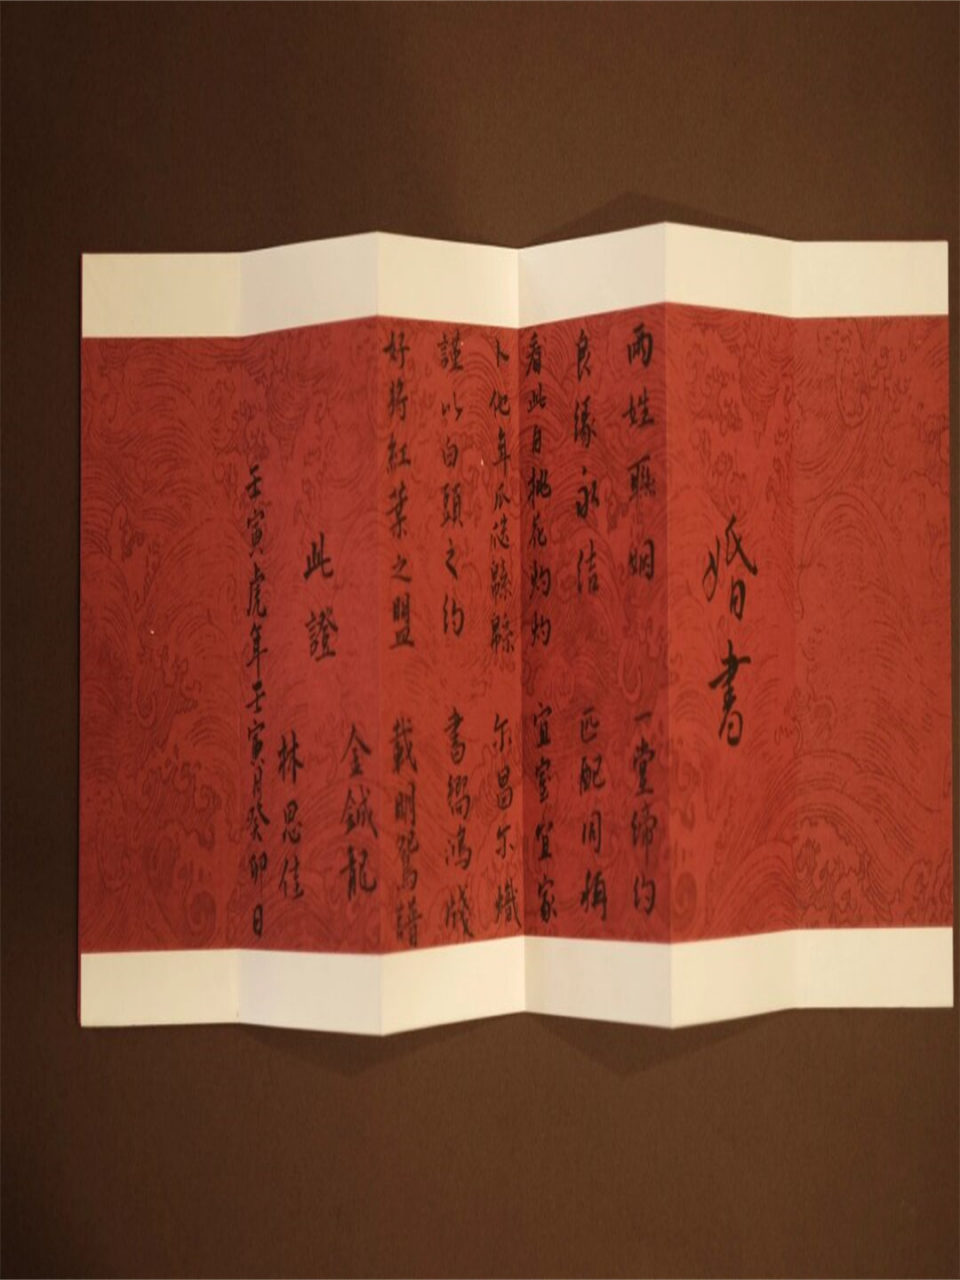 婚書
兩姓聯姻 一堂締約
良緣永結 匹配同稱
看此日桃花灼灼 宜室宜家
卜他年瓜瓞緜緜 尔昌尔熾
謹以白頭之約 書嚮鴻牋
好將紅葉之盟 載明鴛譜
金鉞龍
林思佳
此證
壬寅虎年壬寅月癸卯日